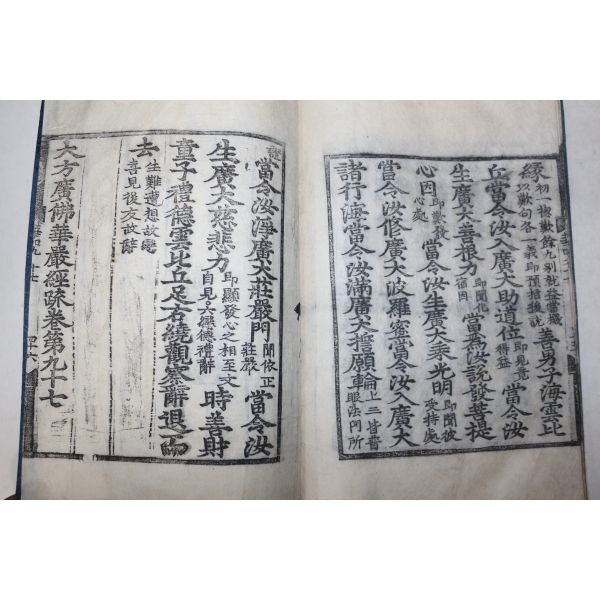 緣初一揔歎餘九別就益當機以歎句各一義即預指後說善男子海雲比
丘當令汝入廣大助道位即見意得益當令汝
生廣大善根力即聞化宿因當爲汝說發菩提
心因即歎發心處當令汝生廣大乘光明即聞彼受持處
當令汝修廣大波羅蜜當令汝入廣大
諸行海當令汝滿廣大誓願輪上三皆普眼法門所
詮當令汝淨廣大莊嚴門聞依正莊嚴當令汝
生廣大慈悲力即顯發心之相至文自見六戀德禮辭時善財
童子禮德雲比丘足右繞觀察辭退而
去生難遭想故戀喜見後友故辭
大方廣佛華嚴經疏卷第九十七